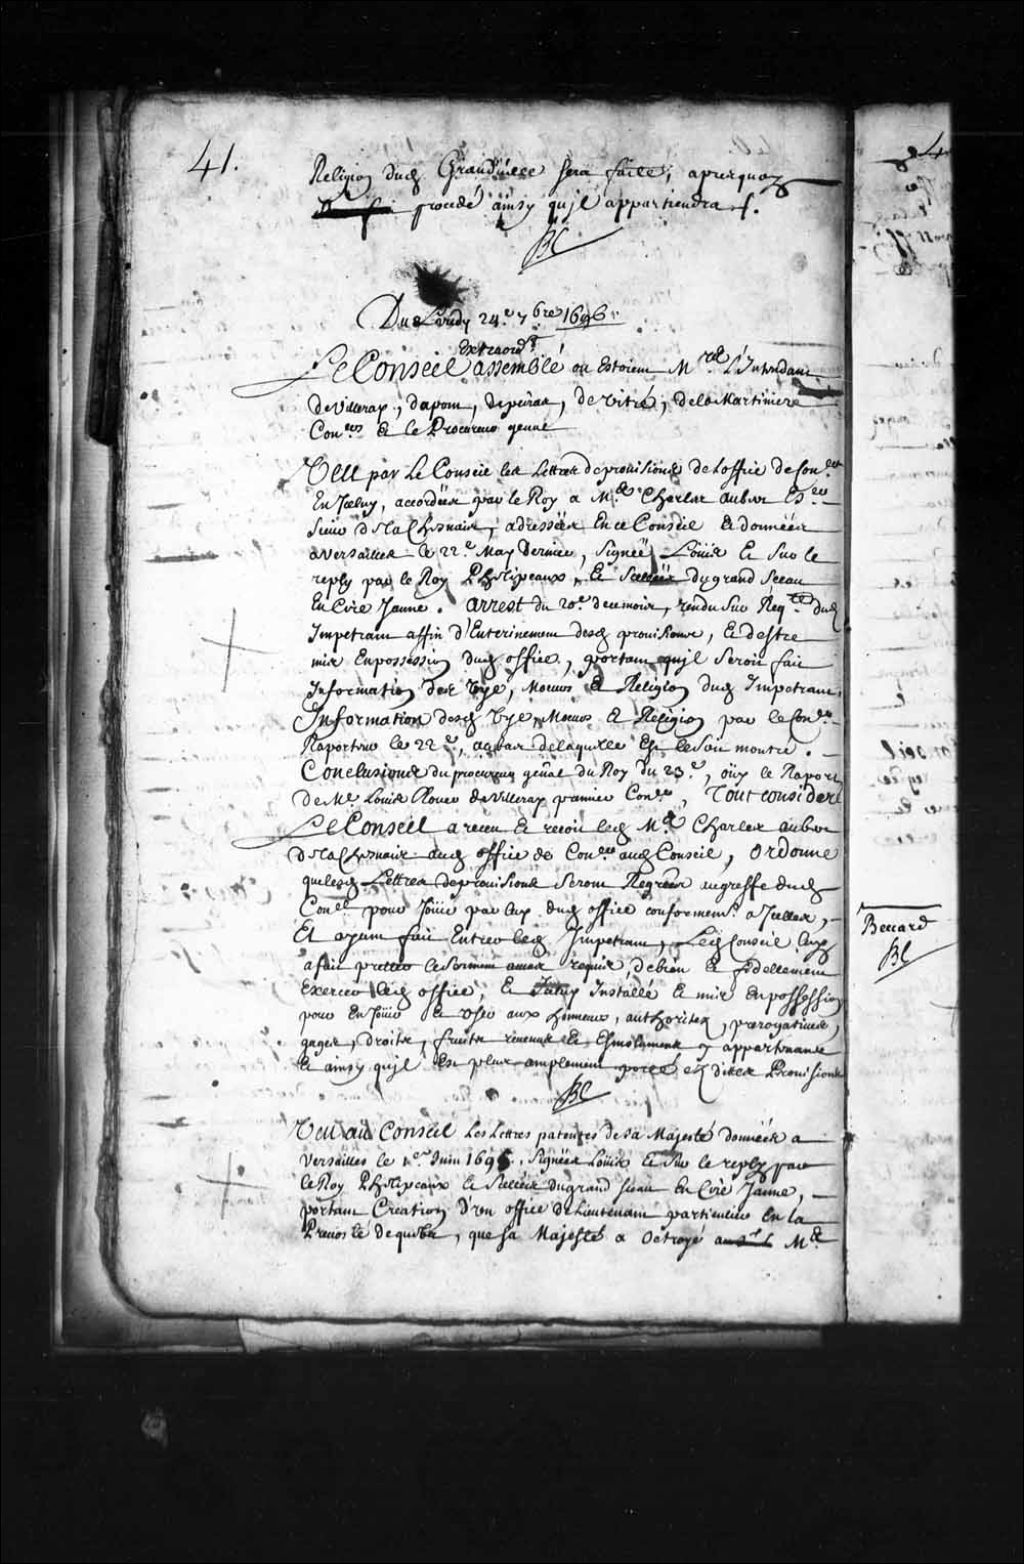 41.
Religion dud Grandmesse sera faite, apresquoy
procedé ainsy qu'jl appartiendra ./.
BC
Du Lundy 24.e 7bre 1696.
Extraord.e
Le Conseil assemblé ou Estoient Mre L'Intendant
de Villeray, dupont, depeiras, de vitré, dela Martiniere
Con.ers Et le Procureur gener̃al
Veu par Le Conseil les Lettres deprouisions de L'office de Con.er
En Jceluy, accordées par le Roy a M.e Charles aubert Es.er
sieur de la Chesnaie, adressées En ce Conseil Et données
a Versailles le 22.e May Dernier, signées Loüis Et sur le
reply par le Roy Phelipeaux, Et scellées du grand sceau
En Cire Jaune. Arrest du 20.e de ce mois, rendu sur Req.te dud
Impetrant affin d'Enterinement desd prouisions, Et destre
mis En possession dud office, portant qu'jl seroit fait
Information des Vye, Moeurs Et Religion dud Impetrant,
Information desd Vye, Moeurs Et Religion par le Con.er
Raporteur le 22.e, au bas de laquelle Est le soit montré.
Conclusions du procureur gñal du Roy du 23.e, oüy le Raport
de M.e Louis Roüer de Villeray premier Con.er, Tout consideré
Le Conseil a receu Et reçoit led M.e Charles aubert
de la Chesnaie aud office de Con.er aud Conseil, Ordonne
que lesd Lettres de prouisions seront Regrées au greffe dud
Con.el pour Joüir par luy dud office conformem.t a Jcelles,
Et ayant fait Entrer led Impetrant, Led Conseil luy
a fait prester le serment requis, de bien Et fidellement
Exercer led office, Et Installé Et mis En possession
pour En Joüir Et vser aux honneurs, authoritez, prerogatiues,
gages, droits, fruits reuenus Et Esmolumens y appartenans
Et ainsy qu'jl Est plus amplement porté esdittes Prouisions
BC
Veu au Conseil Les Lettres patentes de sa Majesté données a
Versailles le 1.er Juin 1695, signées Loüis Et sur le reply par
le Roy Phelipeaux Et scellées du grand sceau En Cire Jaune,
portant Creation d'vn office de Lieutenant particulier En la
Preuosté de quebec, que sa Majesté a octroyé M.e
Becard
BC